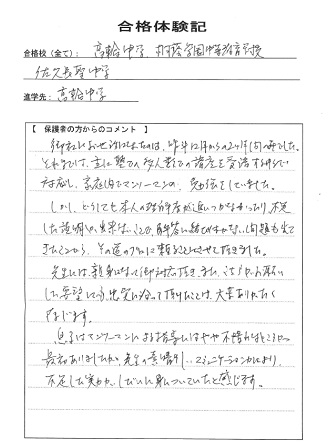 合格体験記
合格校（全て）： 高輪中学、
佐久長聖中学
進学先： 高輪中学
【 保護者の方からのコメント 】
御社にお世話になったのは、昨年12月からの2ヶ月(らず)でした。
それまでは、主に塾での多人数での講座を受講する形で
対応し、家庭内でマンツーマンの、勉強をしていました。
しかし、どうしても本人の理解度が追いつかなかったり、不足
した説明しか出来ないことで、解答に結びつかない問題も出て
きたことから、その道のプロに頼ることにさせて頂きました。
先生には、親身になって御対応頂き、また、こちらからお願い
した要望にも忠実に沿って頂けたことは、大変ありがたく
存じます。
息子はマンツーマンによる指導にはやや不慣れなところが
最初ありましたが、先生の素晴らしいコミュニケーションにより、
不足した実力が、しだいに身についていったと感じます。